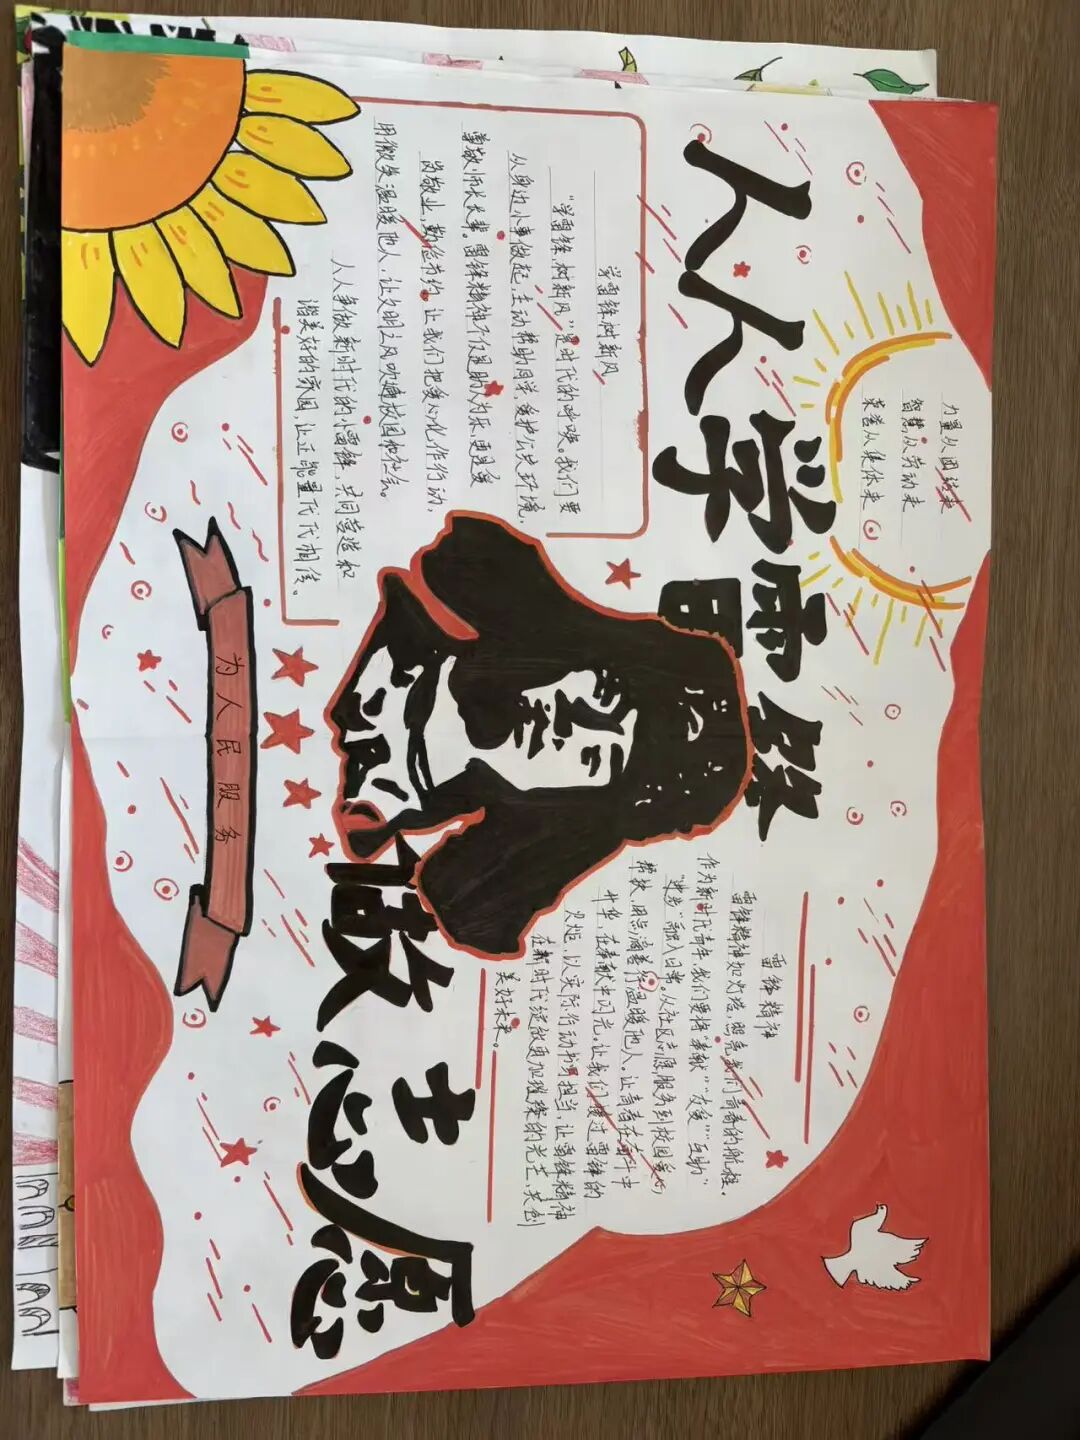 人人学雷锋
做志愿
力量从团结来
智慧从劳动来
荣誉从集体来
学雷锋树新风
“学雷锋,树新风”是时代的呼唤。我们要
从身边小事做起,主动帮助同学,爱护公共环境,
尊敬师长长辈。雷锋精神不仅是助人为乐,更是爱
岗敬业,勤俭节约。让我们把爱心化作行动,
用微笑温暖他人,让文明之风吹遍校园和社会。
人人争做新时代的小雷锋,共同营造和
谐美好的家园,让正能量代代相传。
为人民服务
雷锋精神
雷锋精神如灯塔,照亮我们青春的航程。
作为新时代青年,我们要将“奉献”“友爱”“互助”
“进步”融入日常。从社区志愿服务到校园爱心
帮扶,用点滴善行温暖他人。让青春在奋斗中
升华,在奉献中闪光。让我们接过雷锋的
火炬,以实际行动书写担当,让雷锋精神
在新时代绽放更加璀璨的光芒,共创
美好未来。